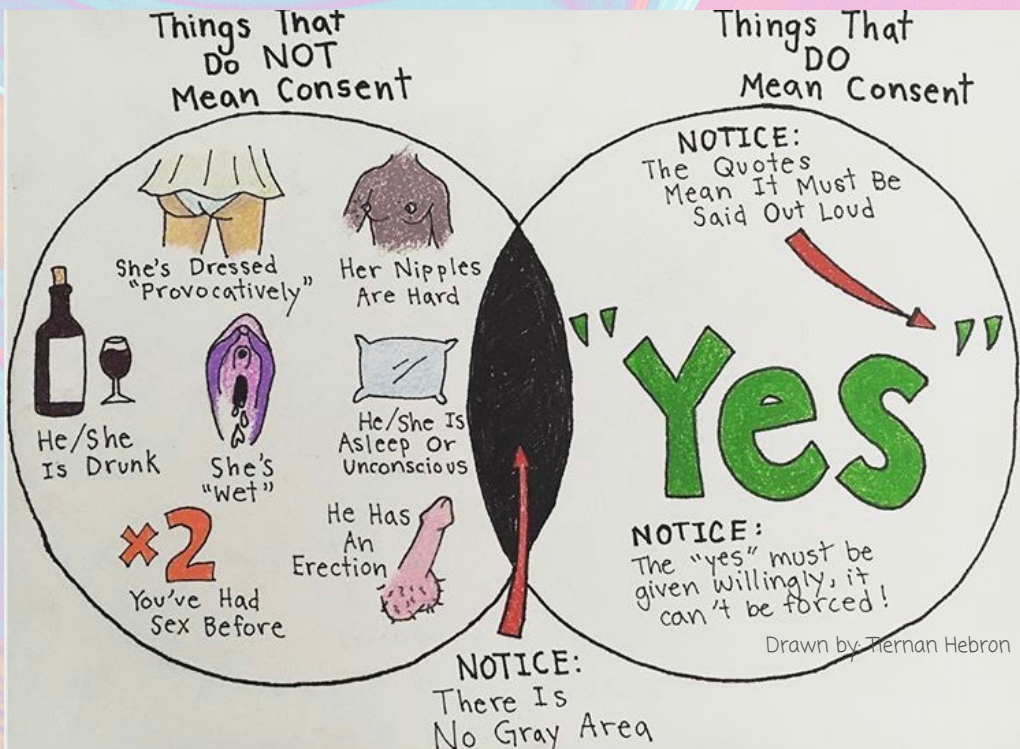 Things That
Do NOT
Mean Consent
She's Dressed
"Provocatively"
Her Nipples
Are Hard
He/She
Is Drunk
She's
"Wet"
He/She Is
Asleep Or
Unconscious
×2
You've Had
Sex Before
He Has
An
Erection
NOTICE:
There Is
No Gray Area
Things That
DO
Mean Consent
NOTICE:
The Quotes
Mean It Must Be
Said Out Loud
"Yes"
NOTICE:
The "yes" must be
given willingly, it
can't be forced!
Drawn by: Tiernan Hebron